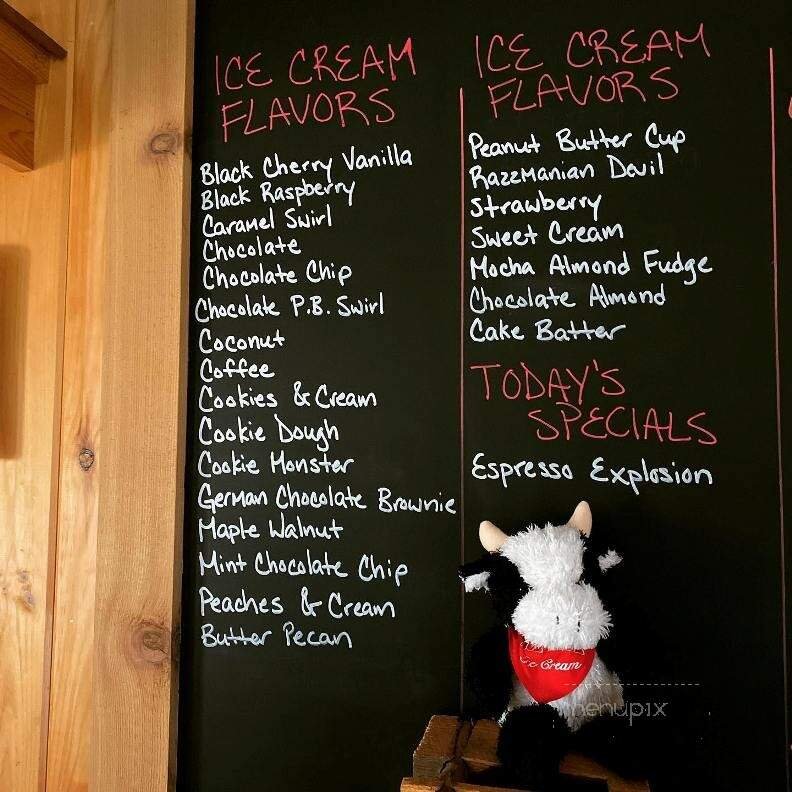 ICE CREAM
FLAVORS
Black Cherry Vanilla
Black Raspberry
Caramel Swirl
Chocolate
Chocolate Chip
Chocolate P.B. Swirl
Coconut
Coffee
Cookies & Cream
Cookie Dough
Cookie Monster
German Chocolate Brownie
Maple Walnut
Mint Chocolate Chip
Peaches & Cream
Butter Pecan
ICE CREAM
FLAVORS
Peanut Butter Cup
Razzmanian Devil
Strawberry
Sweet Cream
Mocha Almond Fudge
Chocolate Almond
Cake Batter
TODAY'S
SPECIALS
Espresso Explosion
Ice Cream
menupix